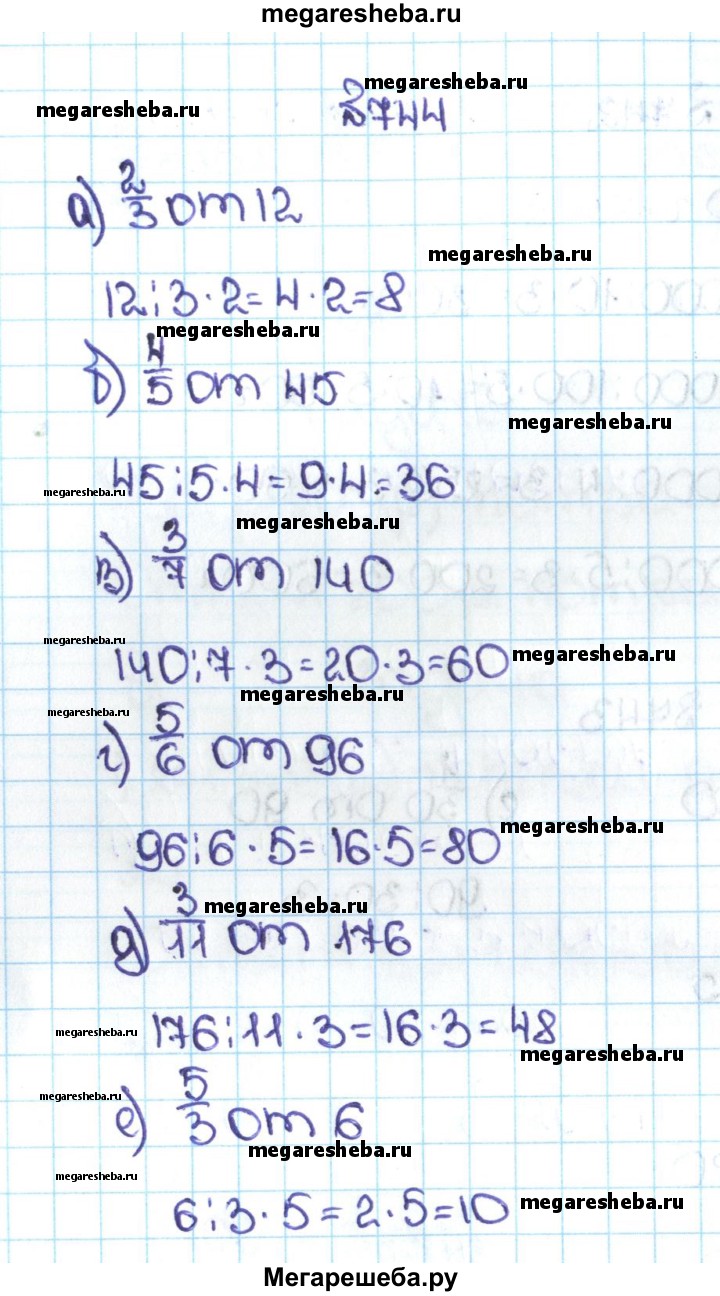 megaresheba.ru
megaresheba.ru
megaresheba.ru
№744
а) 2/3 от 12
megaresheba.ru
12:3·2=4·2=8
megaresheba.ru
б) 4/5 от 45
megaresheba.ru
45:5·4=9·4=36
megaresheba.ru
megaresheba.ru
в) 3/7 от 140
megaresheba.ru
140:7·3=20·3=60
megaresheba.ru
megaresheba.ru
megaresheba.ru
г) 5/6 от 96
megaresheba.ru
96:6·5=16·5=80
megaresheba.ru
д) 3/11 от 176
176:11·3=16·3=48
megaresheba.ru
megaresheba.ru
megaresheba.ru
е) 5/3 от 6
megaresheba.ru
megaresheba.ru
6:3·5=2·5=10
megaresheba.ru
Мегарешеба.ру